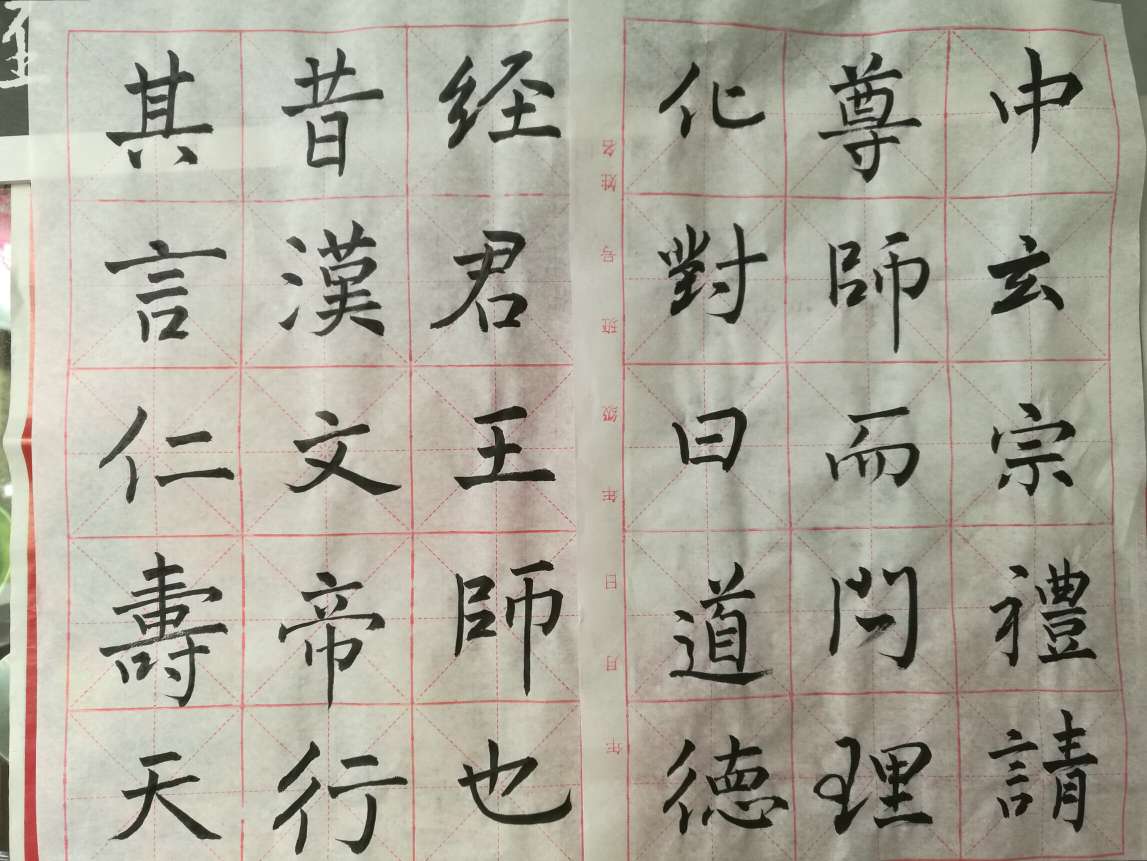 中玄宗禮請
尊師而問理
化對曰道德
经君王師也
昔漢文帝行
其言仁壽天
年 月 日 年 级 班 号 姓名